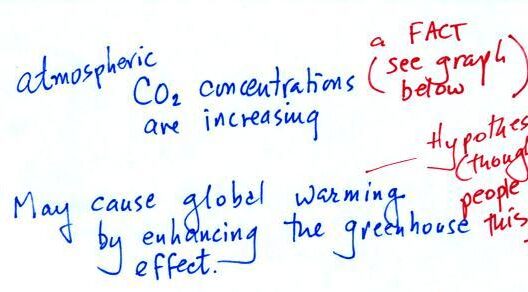 atmospheric
CO₂ concentrations
are increasing
a FACT
(see graph
below)
May cause global warming
by enhancing the greenhouse
effect.
people
this